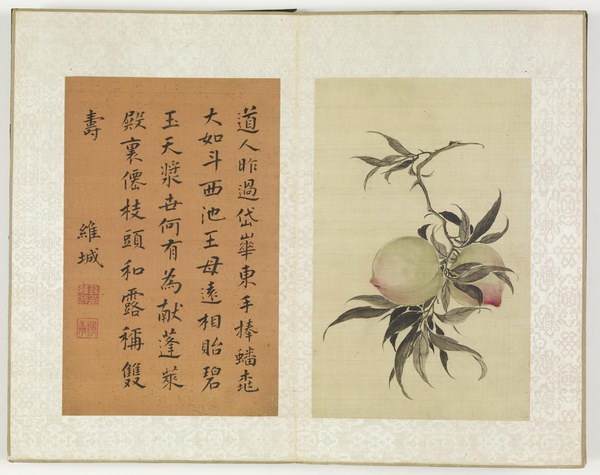 道人昨過岱華東手捧蟠桃
大如斗西池王母遠相貽碧
玉天漿世何有為献蓬萊
殿裏僊枝頭和露稱雙
壽
維城